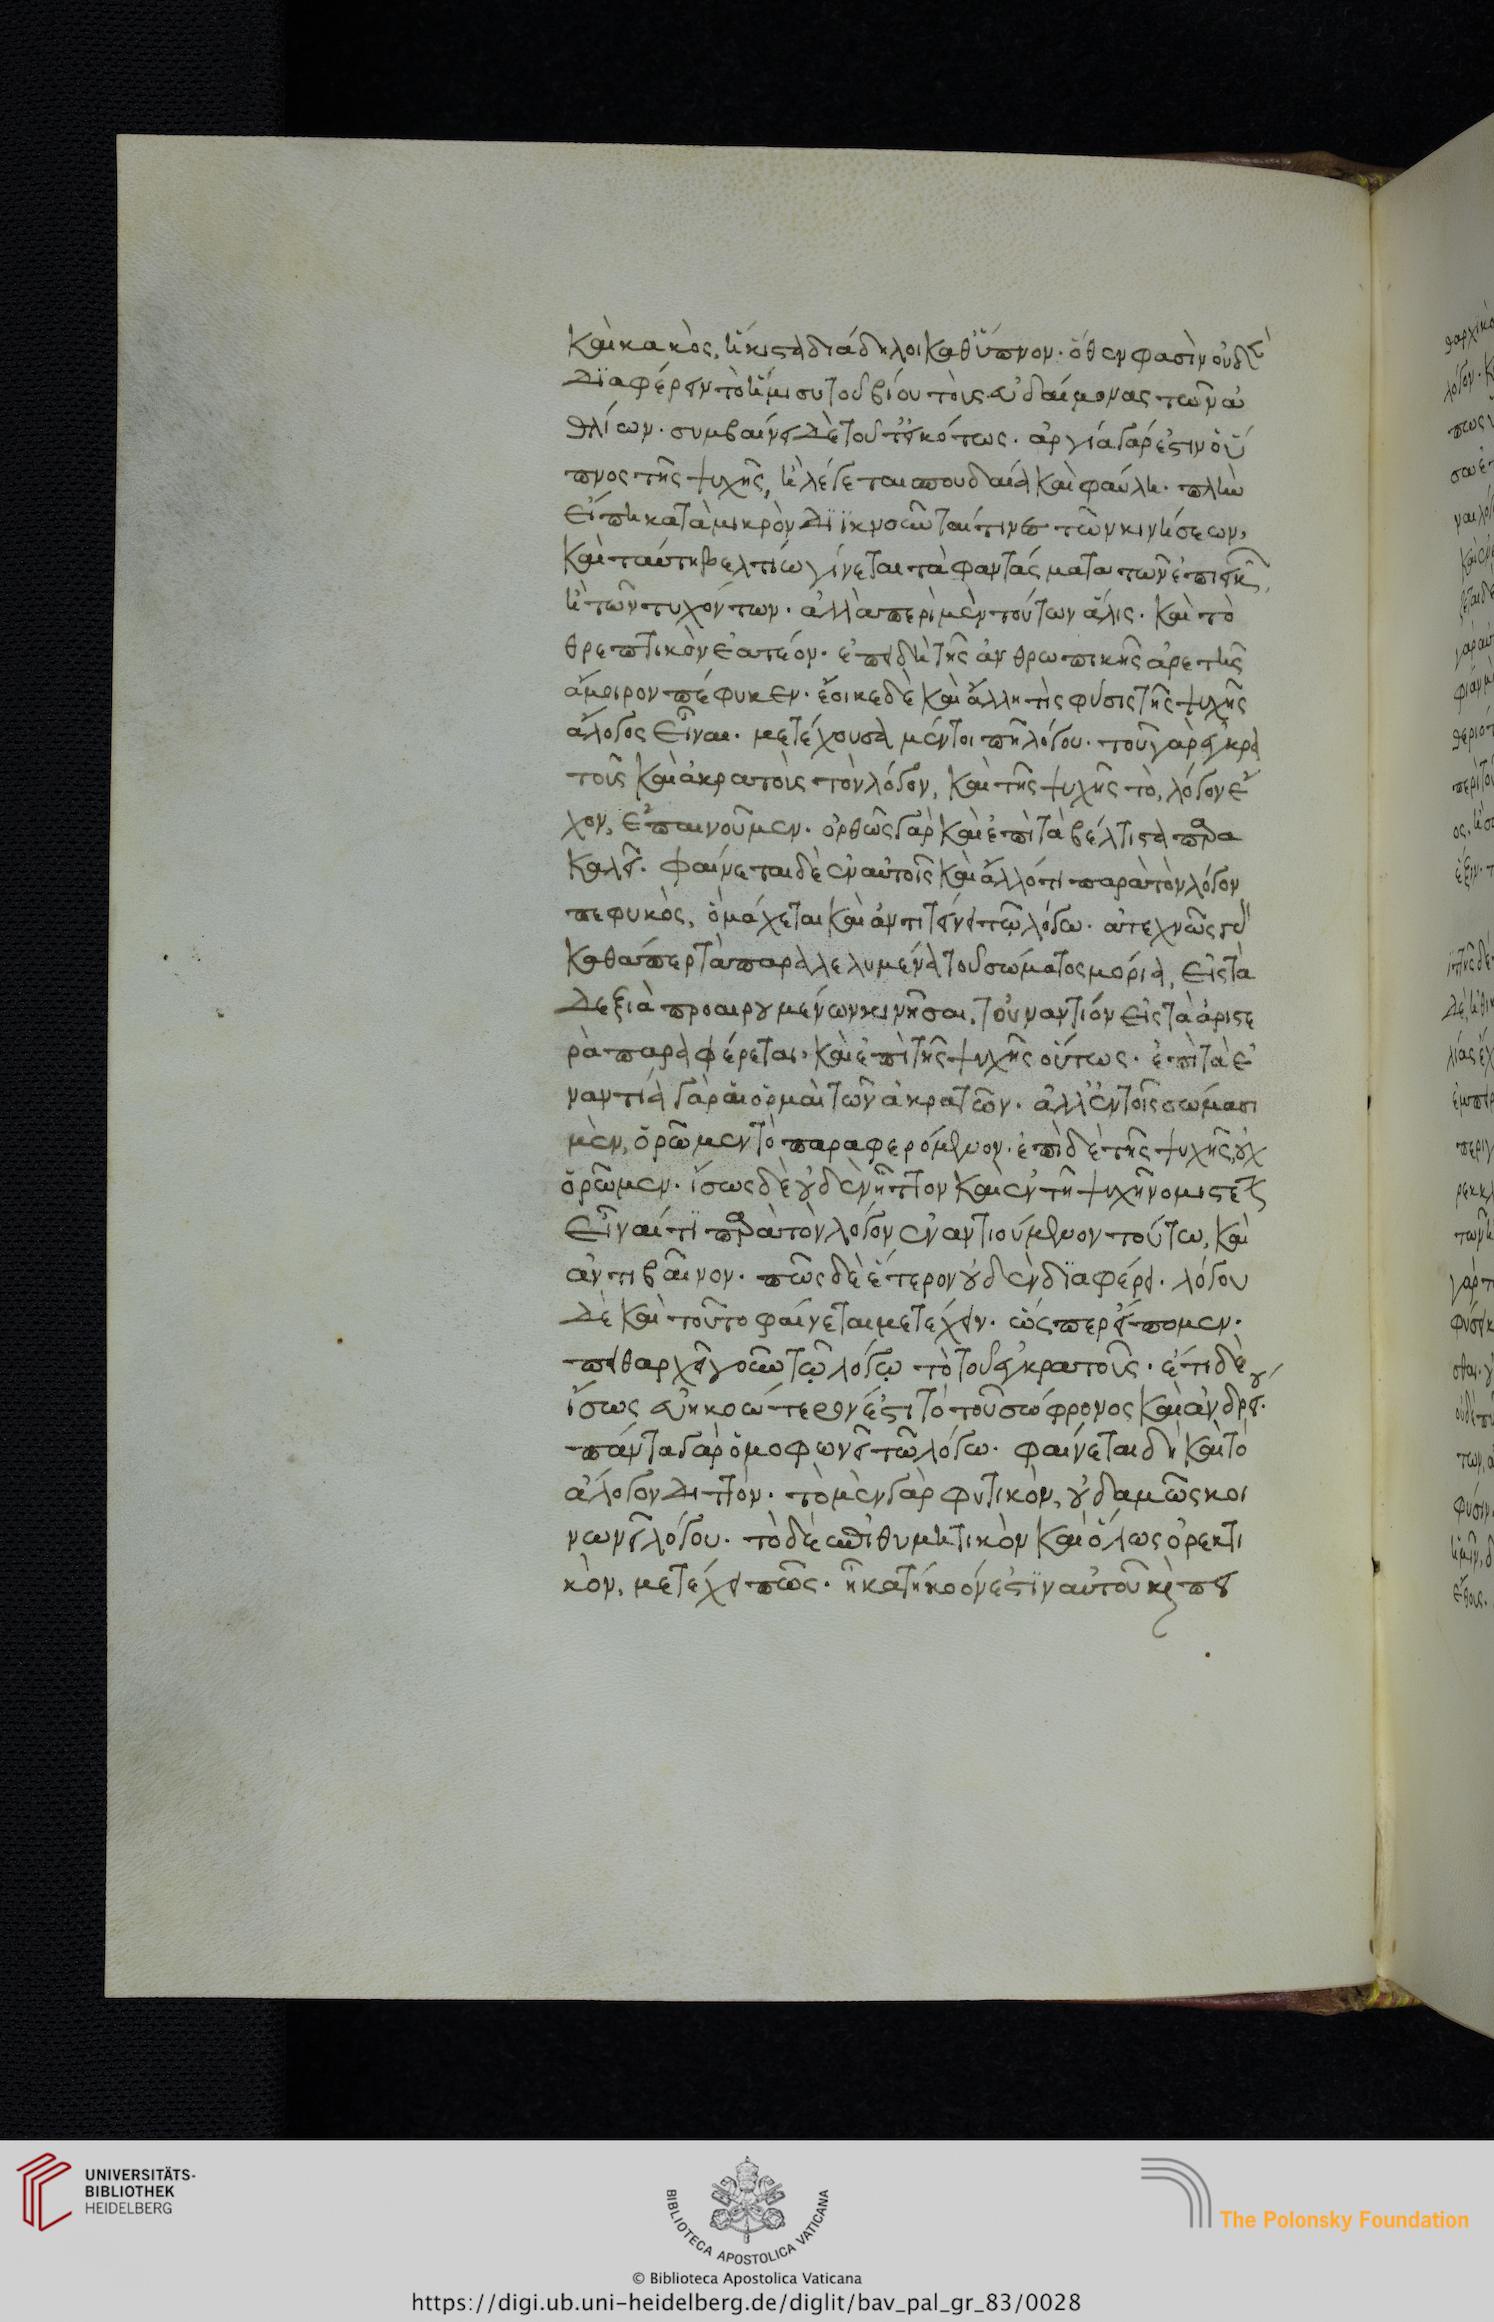 καὶ κακὸς, ἥκιστα διάδηλοι καθ' ὕπνον· ὅθεν φασὶν οὐδὲ
διαφέρειν τὸ ἥμισυ τοῦ βίου τοὺς εὐδαίμονας τῶν ἀ
θλίων· συμβαίνει δὲ τοῦτ' εἰκότως. ἀργία γάρ ἐστιν ὁ ὕ
πνος τῆς ψυχῆς, ἣ λέγεται σπουδαία καὶ φαύλη. πλὴν
εἴ πη κατὰ μικρὸν διϊκνοῦνταί τινες τῶν κινήσεων,
καὶ ταύτη βελτίω γίνεται τὰ φαντάσματα τῶν ἐπιεικῶν,
ἢ τῶν τυχόντων. ἀλλὰ περὶ μὲν τούτων ἅλις. καὶ τὸ
θρεπτικὸν ἐατέον. ἐπειδὴ τῆς ἀνθρωπικῆς ἀρετῆς
ἄμοιρον πέφυκεν. ἔοικε δὲ καὶ ἄλλη τὶς φύσις τῆς ψυχῆς
ἄλογος εἶναι. μετέχουσα μέντοι πῃ λόγου. τοῦ γὰρ ἐγκρα
τοῦς καὶ ἀκρατοῦς τὸν λόγον, καὶ τῆς ψυχῆς τὸ, λόγον ἔ
χον, ἐπαινοῦμεν. ὀρθῶς γὰρ καὶ ἐπὶ τὰ βέλτιστα παρα
καλεῖ. φαίνεται δὲ ἐν αὐτοῖς καὶ ἄλλό τι παρὰ τὸν λόγον
πεφυκὸς, ὃ μάχεται καὶ ἀντιτείνει τῷ λόγω. ἀτεχνῶς γὰρ
καθάπερ τὰ παραλελυμένα τοῦ σώματος μόρια, εἰς τὰ
δεξιὰ προαιρουμένων κινῆσαι, τοὐναντίον εἰς τὰ ἀριστε
ρὰ παραφέρεται, καὶ ἐπὶ τῆς ψυχῆς οὕτως. ἐπὶ τὰ ἐ
ναντία γὰρ αἱ ὁρμαὶ τῶν ἀκρατῶν. ἀλλ' ἐν τοῖς σώμασι
μὲν, ὁρῶμεν τὸ παραφερόμενον. ἐπὶ δὲ τῆς ψυχῆς, οὐχ
ὁρῶμεν. ἴσως δὲ οὐδὲν ἧττον καὶ ἐν τῆ ψυχῆ νομιστέον
εἶναί τι παρὰ τὸν λόγον ἐναντιούμενον τούτω, καὶ
ἀντιβαῖνον. πῶς δὲ ἕτερον οὐδὲν διαφέρει. λόγου
δὲ καὶ τοῦτο φαίνεται μετέχειν. ὥσπερ εἴπομεν.
πειθαρχεῖ γοῦν τῷ λόγῳ τὸ τοῦ ἐγκρατοῦς. ἔτι δὲ
ἴσως εὐηκοώτερόν ἐστι τὸ τοῦ σώφρονος καὶ ἀνδρείου.
πάντα γὰρ ὁμοφωνεῖ τῶ λόγω. φαίνεται δὴ καὶ τὸ
ἄλογον διττόν. τὸ μὲν γὰρ φυτικὸν, οὐδαμῶς κοι
νωνεῖ λόγου. τὸ δὲ ἐπιθυμητικὸν καὶ ὅλως ὀρεκτι
κὸν, μετέχει πῶς. ἧ κατήκοόν ἐστιν αὐτοῦ καὶ πει
UNIVERSITÄTS-
BIBLIOTHEK
HEIDELBERG
BIBLIOTECA APOSTOLICA VATICANA
© Biblioteca Apostolica Vaticana
The Polonsky Foundation
https://digi.ub.uni-heidelberg.de/diglit/bav_pal_gr_83/0028